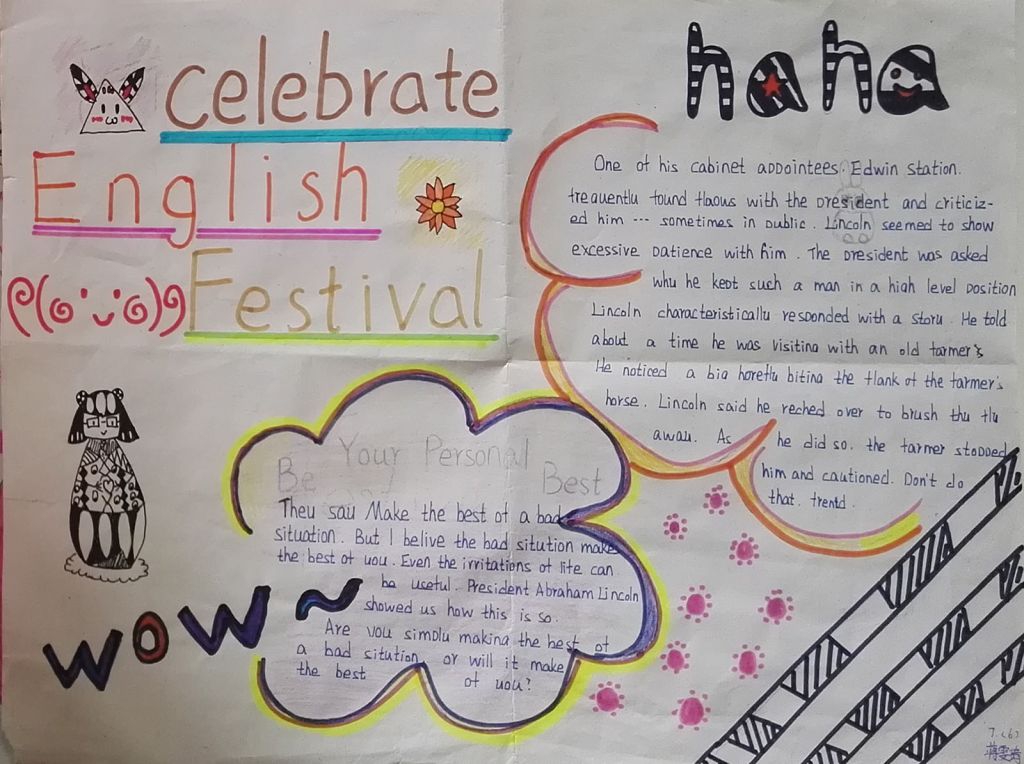 celebrate
English
Festival
haha
One of his cabinet appointees Edwin Station.
frequently found flaous with the president and criticiz-
ed him --- sometimes in public. Lincoln seemed to show
excessive patience with him. The president was asked
why he kept such a man in a high level position
Lincoln characteristically responded with a story. He told
about a time he was visiting with an old farmer's
He noticed a big horefly biting the flank of the farmer's
horse. Lincoln said he reched over to brush thu fly
away. As he did so. the farmer stopped
him and cautioned. Don't do
that. frentd.
Be Your Personal Best
They say Make the best of a bad
situation. But I belive the bad sitution make
the best of you. Even the irritations of life can
be useful. President Abraham Lincoln
showed us how this is so.
Are you simply making the best of
a bad sitution or will it make
the best of you?
wow~
7.(6)